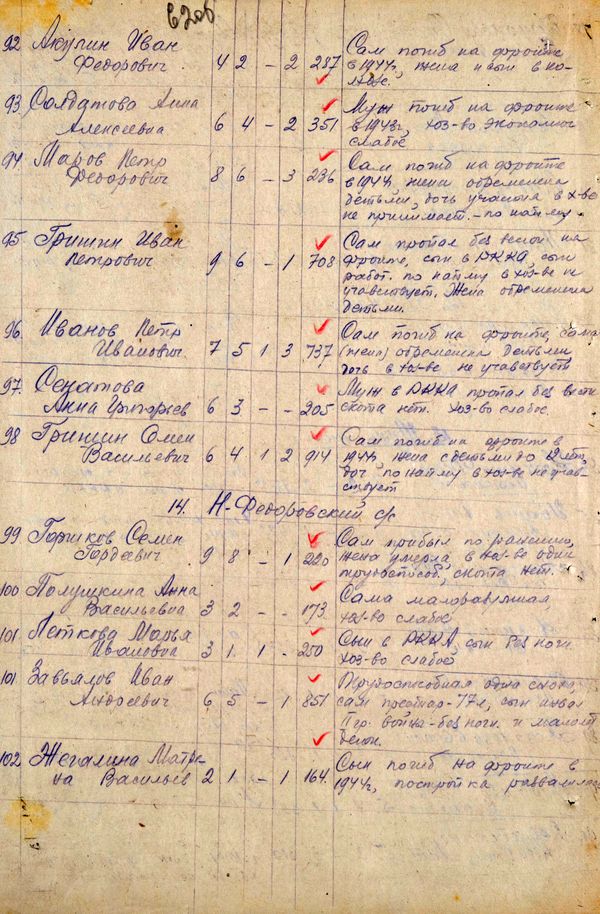 92 Акулин Иван
Федорович 4 2 - 2 287
Сам погиб на фронте
в 1944г, жена и сын в ко-
93 Солдатова Анна
Алексеевна 6 4 - 2 351
Муж погиб на фронте
в 1943г, хоз-во экономич
слабое
94 Маров Петр
Федорович 8 6 - 3 236
Сам погиб на фронте
в 1944, жена обременена
детьми, дочь участия в х-ве
не принимает - по найму
95 Гришин Иван
Петрович 9 6 - 1 708
Сам пропал без вести на
фронте, сын в РККА, сын
работ. по найму в хоз-ве не
учавствует. Жена обременена
детьми.
96 Иванов Петр
Иванович 7 5 1 3 737
Сам погиб на фронте, сама
(жена) обременена детьми
дочь в хоз-ве не учавствует
97 Сенатова
Анна Григорьев 6 3 - - 205
Муж в РККА пропал без вести
скота нет. Хоз-во слабое.
98 Гришин Семен
Васильевич 6 4 1 2 914
Сам погиб на фронте в
1944г, жена с детьми до 12 лет,
доч по найму в хоз-ве не учав-
ствует
14. Н-Федоровский с/с
99 Горшков Семен
Гордеевич 9 8 - 1 220
Сам прибыл по ранению,
жена умерла, в хоз-ве один
трудоспособ, скота нет.
100 Полушкина Анна
Васильевна 3 2 - - 173
Сама
хоз-во слабое
101 Петкова Марья
Ивановна 3 1 1 - 250
Сын в РККА, сын без ноги
хоз-во слабое
101 Завьялов Иван
Андреевич 6 5 - 1 851
Трудоспособная одна сноха,
сам 77л, сын инвал
войны - без ноги и
102 Жегалина Матре-
на Васильев 2 1 - 1 164
Сын погиб на фронте в
1944г, постройка развалилась